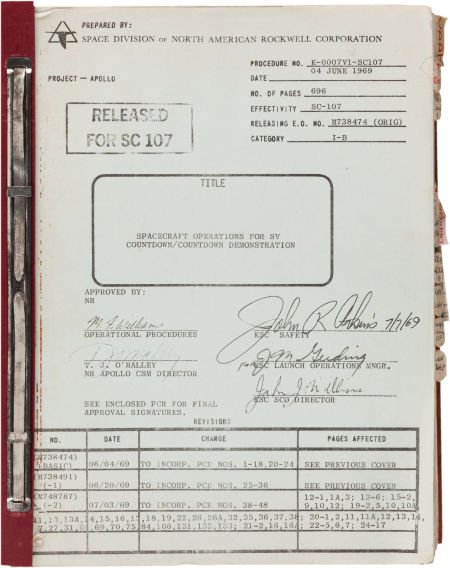 PREPARED BY:
SPACE DIVISION OF NORTH AMERICAN ROCKWELL CORPORATION
PROCEDURE NO. K-0007V1-SC107
04 JUNE 1969
PROJECT — APOLLO
DATE
NO. OF PAGES 696
EFFECTIVITY SC-107
RELEASING E.O. NO. M738474 (ORIG)
CATEGORY I-B
RELEASED
FOR SC 107
TITLE
SPACECRAFT OPERATIONS FOR SV
COUNTDOWN/COUNTDOWN DEMONSTRATION
APPROVED BY:
NR
John R 7/7/69
M. F. Williams
OPERATIONAL PROCEDURES
KSC SAFETY
T. J. O'MALLEY
NR APOLLO CSM DIRECTOR
for KSC LAUNCH OPERATIONS MNGR.
John J. Williams
KSC SCO DIRECTOR
SEE ENCLOSED PCR FOR FINAL
APPROVAL SIGNATURES.
REVISIONS
NO. DATE CHANGE PAGES AFFECTED
(M738474)
(BASIC) 06/04/69 TO INCORP. PCR NOS. 1-18,20-24 SEE PREVIOUS COVER
(M738491)
(-1) 06/20/69 TO INCORP. PCR NOS. 25-36 SEE PREVIOUS COVER
(M748787) 12-1,1A,3; 13-6; 15-2,
(-2) 07/03/69 TO INCORP. PCR NOS. 38-48 9,10,12; 19-2,5,10,10A
11,13,13A,14,15,16,17,18,19,22,26,26A,32,35,36,37,38; 20-1,2,11,11A,12,13,14,
7,27,31,64,69,70,75,84,106,131,132,133; 21-2,16,16A; 22-5,6,7; 24-17